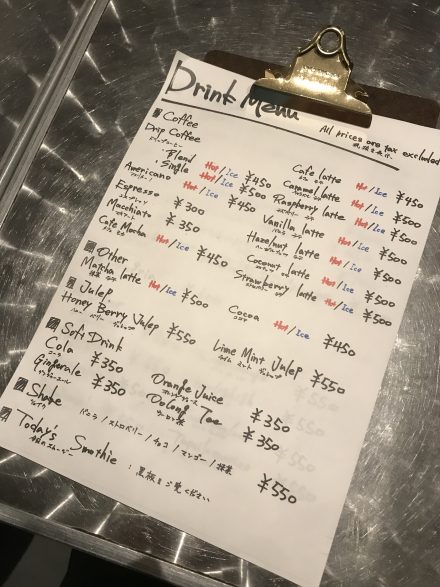 Drink Menu
All prices are tax excluded
Coffee
Drip Coffee
ドリップコーヒー
・Blend Hot / Ice ¥450
・Single Hot / Ice ¥500
Americano Hot / Ice ¥450
Espresso ¥300
Macchiato ¥350
Café Mocha Hot / Ice ¥450
カフェモカ
Café latte Hot / Ice ¥450
カフェラテ
Caramel latte Hot / Ice ¥500
Raspberry latte Hot / Ice ¥500
Vanilla latte Hot / Ice ¥500
Hazelnut latte Hot / Ice ¥500
Coconut latte Hot / Ice ¥500
Strawberry latte Hot / Ice ¥500
Other
Matcha latte Hot / Ice ¥500
抹茶 ラテ
Cocoa Hot / Ice ¥450
ココア
Julep
Honey Berry Julep ¥550
Lime Mint Julep ¥550
Soft Drink
Cola ¥350
コーラ
Gingerale ¥350
Orange Juice ¥350
Oolong Tea ¥350
Shake
シェイク
バニラ / ストロベリー / チョコ / マンゴー / 抹茶 ¥550
Today's Smoothie : 黒板をご覧ください